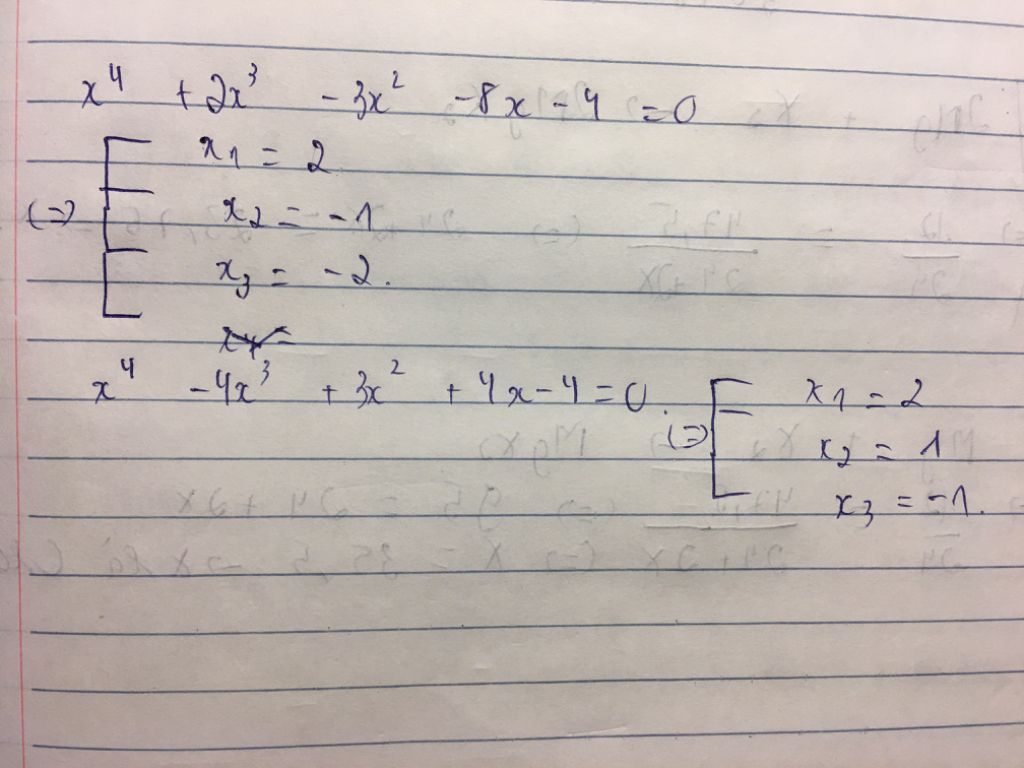 x⁴ + 2x³ - 3x² - 8x - 4 = 0
x₁ = 2
(=) x₂ = -1
x₃ = -2.
x₄ =
x⁴ - 4x³ + 3x² + 4x - 4 = 0. (=) x₁ = 2
x₂ = 1
x₃ = -1.